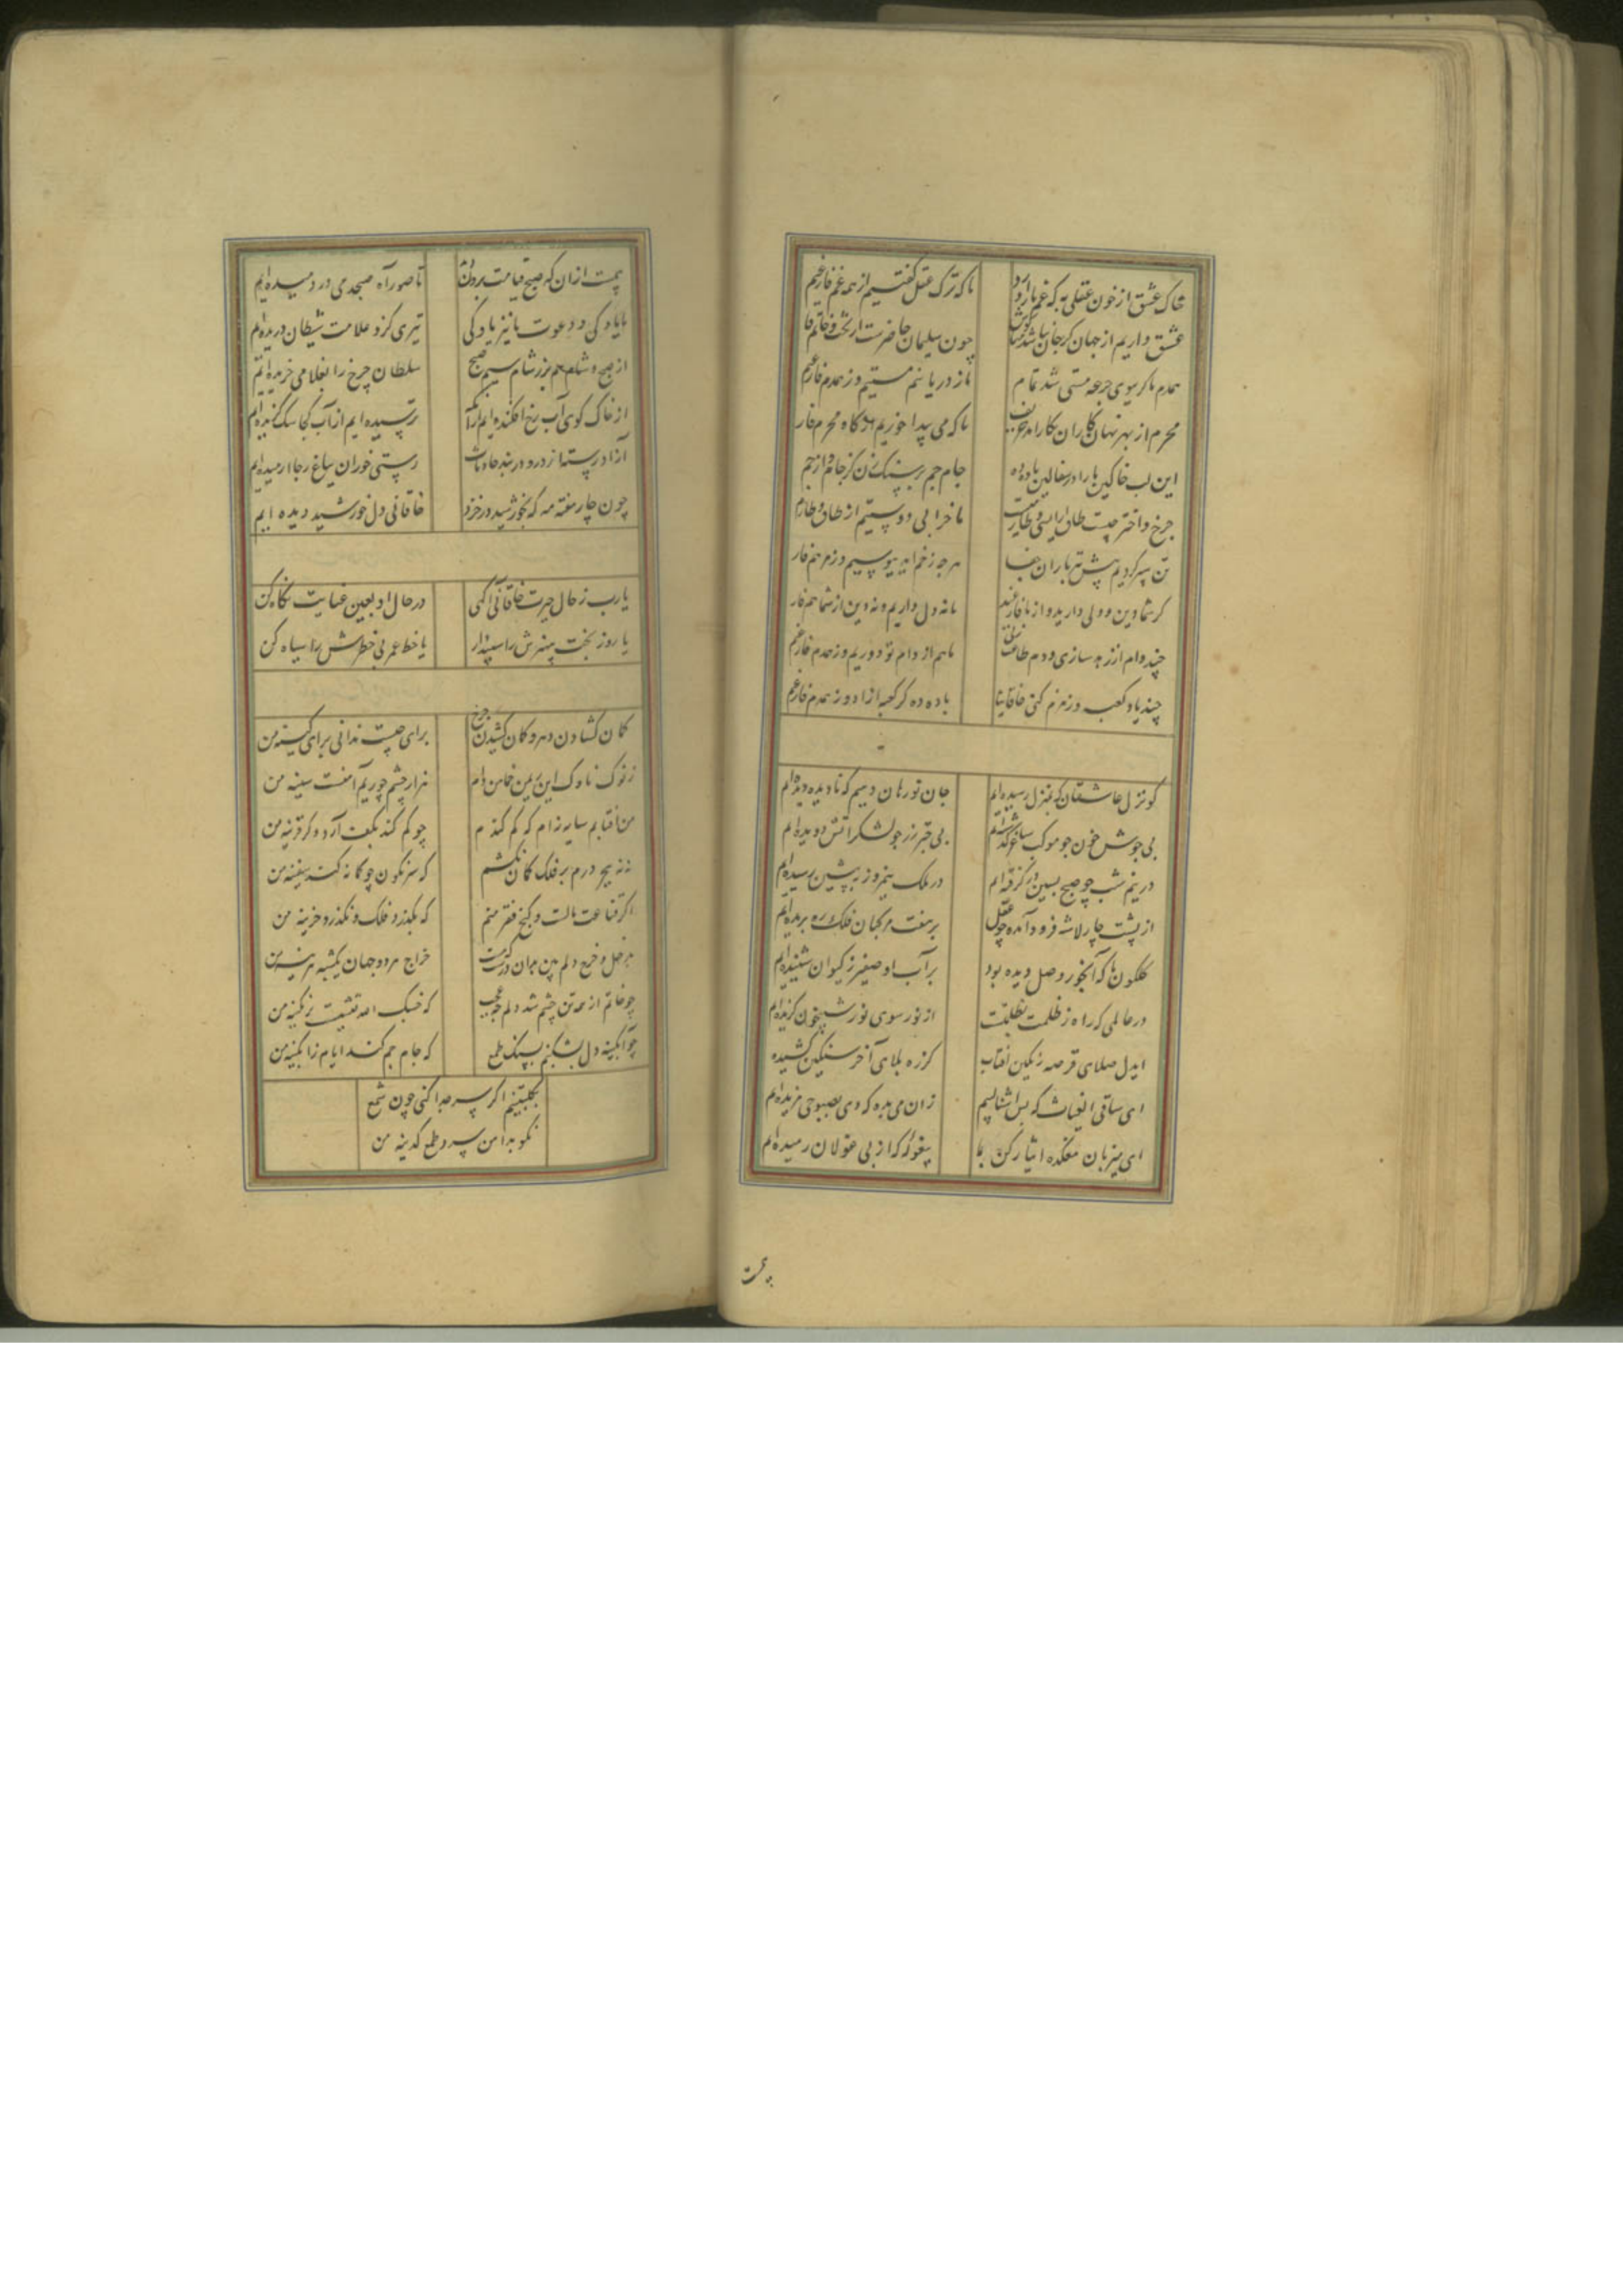 خاک عشق از خون عقلی به که غم بار آرد
ما که ترک عقل گفتیم از همه غم فارغیم
عشق داریم از جهان گر جان مباشد گو مباش
چون سلیمان حاضرست از تخت و خاتم فارغیم
همدم ما گر بوی جرعه مستی شد تمام
ما ز دریا نیم مستیم و ز همدم فارغیم
محرم از بهر نهان کاران بکار آید حریف
ما که می پیدا خوریم از کاه محرم فارغیم
این لب خاکین ما را در سفالین باده ده
جام جم بر سنگ زن کز جام و از جم
چرخ و اختر چیست طاق آرایشی و طارمیست
ما خرابی دوستیم از طاق و طارم
تن سپر کردیم پیش تیر باران جفا
هر چه زخم آید ببوسیم و ز مرهم فارغ
گر شما دین و دلی دارید و از ما فارغید
ما نه دل داریم و نه دین از شما هم فارغ
چند دام از زهد سازی و دم طاعت زنی
ما هم از دام تو دوریم و ز هم دم فارغیم
چند یاد کعبه و زمزم کنی خاقانیا
باده ده کز کعبه آزاد و ز زمزم فارغیم
کو نزل عاشقان که بمنزل رسیده ایم
جان نورهان دهیم که نادیده دیده ایم
بی جوش خون چو موکب ساغر گذشته ایم
بی خبر زر چو لشکر آتش دویده ایم
در نیم شب چو صبح پسین در گرفته ایم
در ملک نیمروز به پیشین رسیده ایم
از پشت چار لاشه فرود آمده چو عقل
بر هفت مرکبان فلک ره بریده ایم
گلگون ما که آبخور وصل دیده بود
بر آب او صفیر ز کیوان شنیده ایم
در عالمی که راه ز ظلمت بظلمت
از نور سوی نور شبیخون گزیده ایم
ایدل صلای قرصه رنگین آفتاب
ای ساقی الغیاث که بس ناشتالبیم
زان می بده که دی بصبوحی مزیده ایم
ای میزبان میکده ایثار کن بما
بیغوله که از پی غولان رمیده ایم
پیمت
پیمت از آن که صبح قیامت برون
تا صور آه صبحدمی در دمیده ایم
با یاد کی و دعوت ما نیز یاد کی
تیری کزو علامت شیطان دریده ایم
از صبح و شام هم بزر شام و سیم صبح
سلطان چرخ را بغلامی خریده ایم
از خاک کوی آب رخ افکنده ایم از آنک
ترسیده ایم از آب کجا سگ گزیده ایم
آزاد رسته از در و دربند حادثات
رستی خوران بباغ رجا آرمیده ایم
چون چار هفته مه که بخورشید در خزد
خاقانی دل خورشید دیده ایم
یارب ز حال حیرت خاقانی آگهی
در حال او بعین عنایت نگاه کن
یا روز بخت بیهنرش را سپید آر
یا خط عمر بی خطرش را سیاه کن
کمان گشادن دهر و کمان کشیدن چرخ
برای چیست ندانی برای کینه من
ز نوک ناوک این ریمن خماهن فام
هزار چشم چو ریم آهنست سینه من
من آفتابم سایه نیم که گم کندم
چو گم کند بکف آرد دگر قرینه من
نه هیچ درم بر فلک کمان نکشم
که سرنگون چو کمانه کند سفینه من
اگر قناعت مالست و گنج فقر منم
که بگذرد فلک و نگذرد خزینه من
چو خاتم ار همه تن چشم شد دلم چه عجب
چو آبگینه دل بشکنم بسنگ طمع
که جام جم کند ایام ز آبگینه من
بکلبتینم اگر سر جدا کنی چون شمع
نکو بد دامن سرد و طمع گدینه من